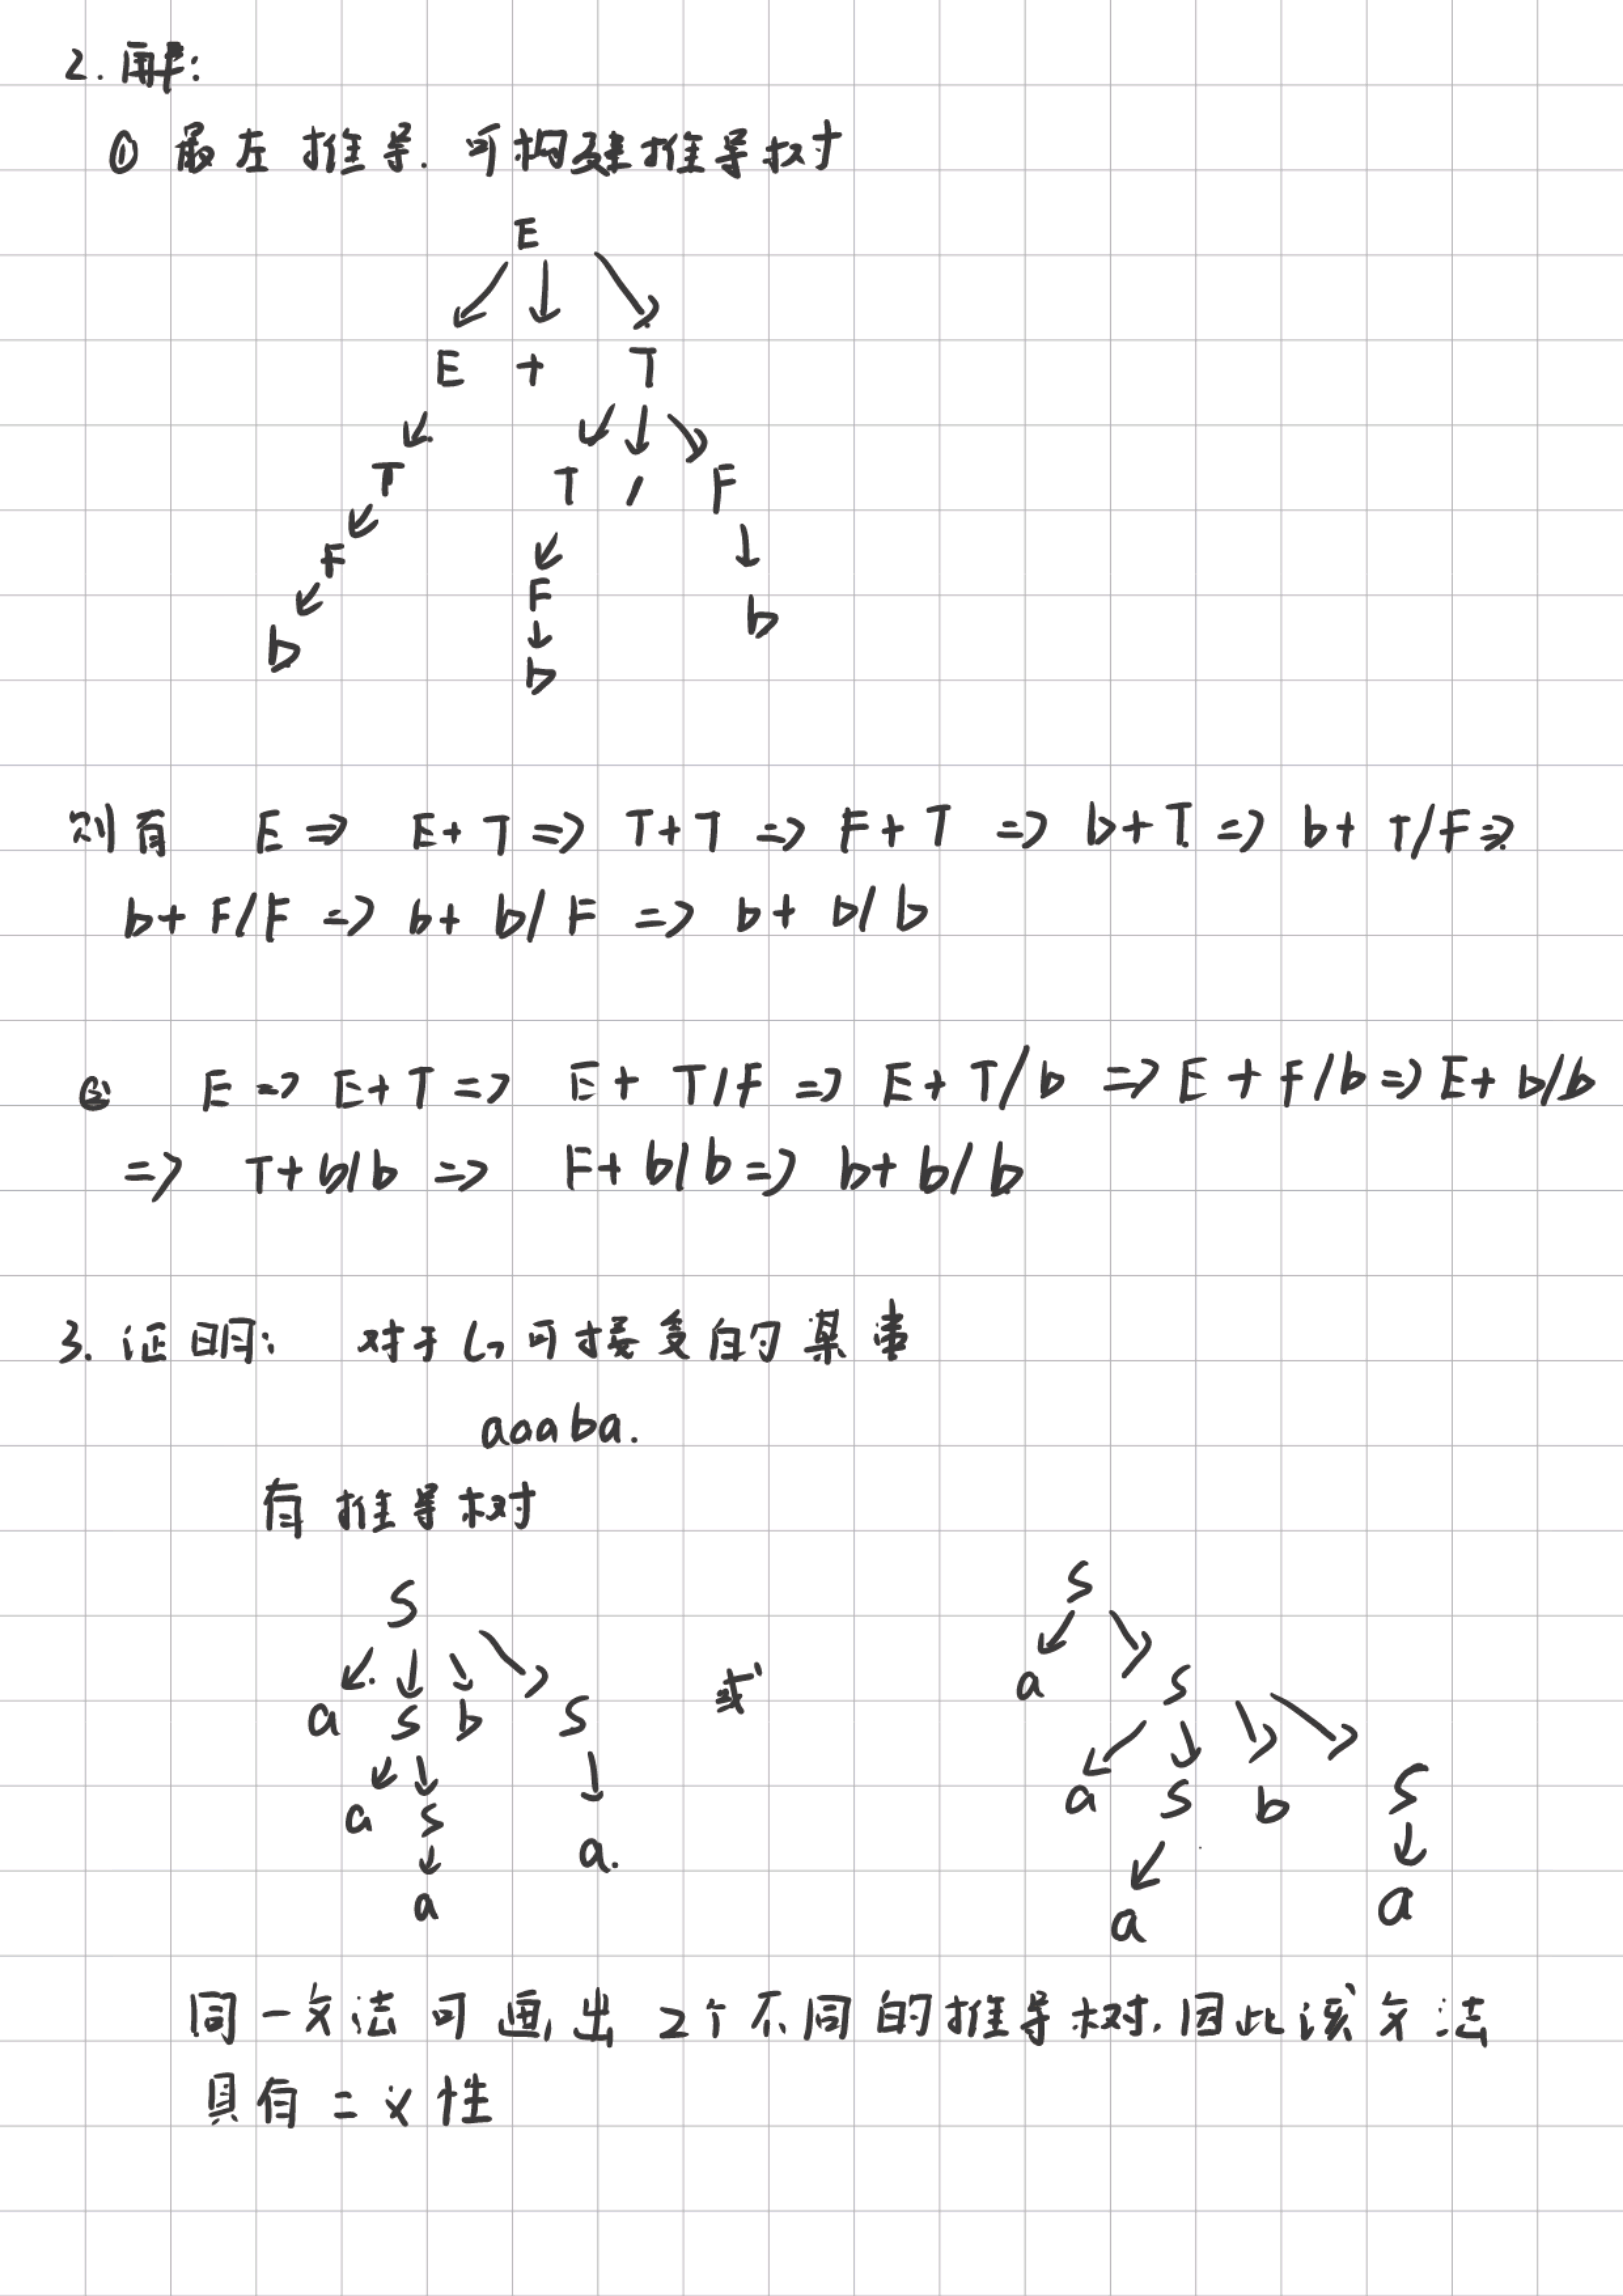 2. 解:
① 最左推导. 可构建推导树
E
E + T
T T / F
F F b
b b
则有 E => E+T => T+T => F+T => b+T => b+T/F =>
b+F/F => b+b/F => b+b/b
② E => E+T => E+T/F => E+T/b => E+F/b => E+b/b
=> T+b/b => F+b/b => b+b/b
3. 证明: 对于G可接受的某串
aaaba.
有推导树
S
a S b S
a S a.
a
或
S
a S
a S b S
a a
同一文法可画出2个不同的推导树,因此该文法
具有二义性